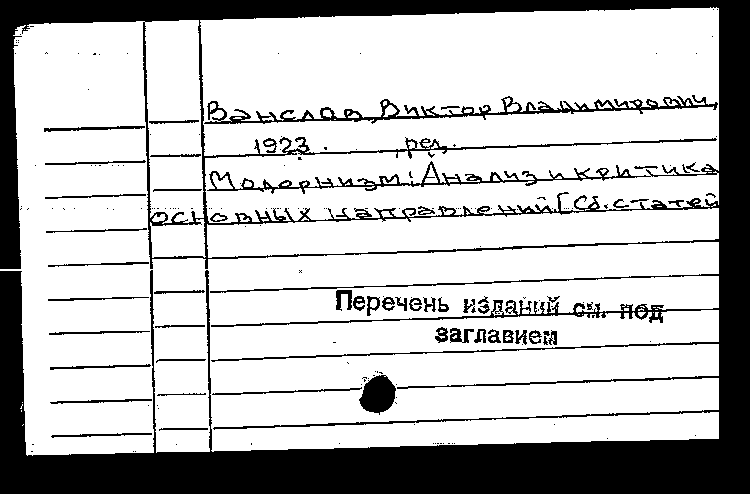 Ванслов, Виктор Владимирович,
1923. , ред.
Модернизм: Анализ и критика
основных направлений. [Сб. статей
Перечень изданий см. под
заглавием